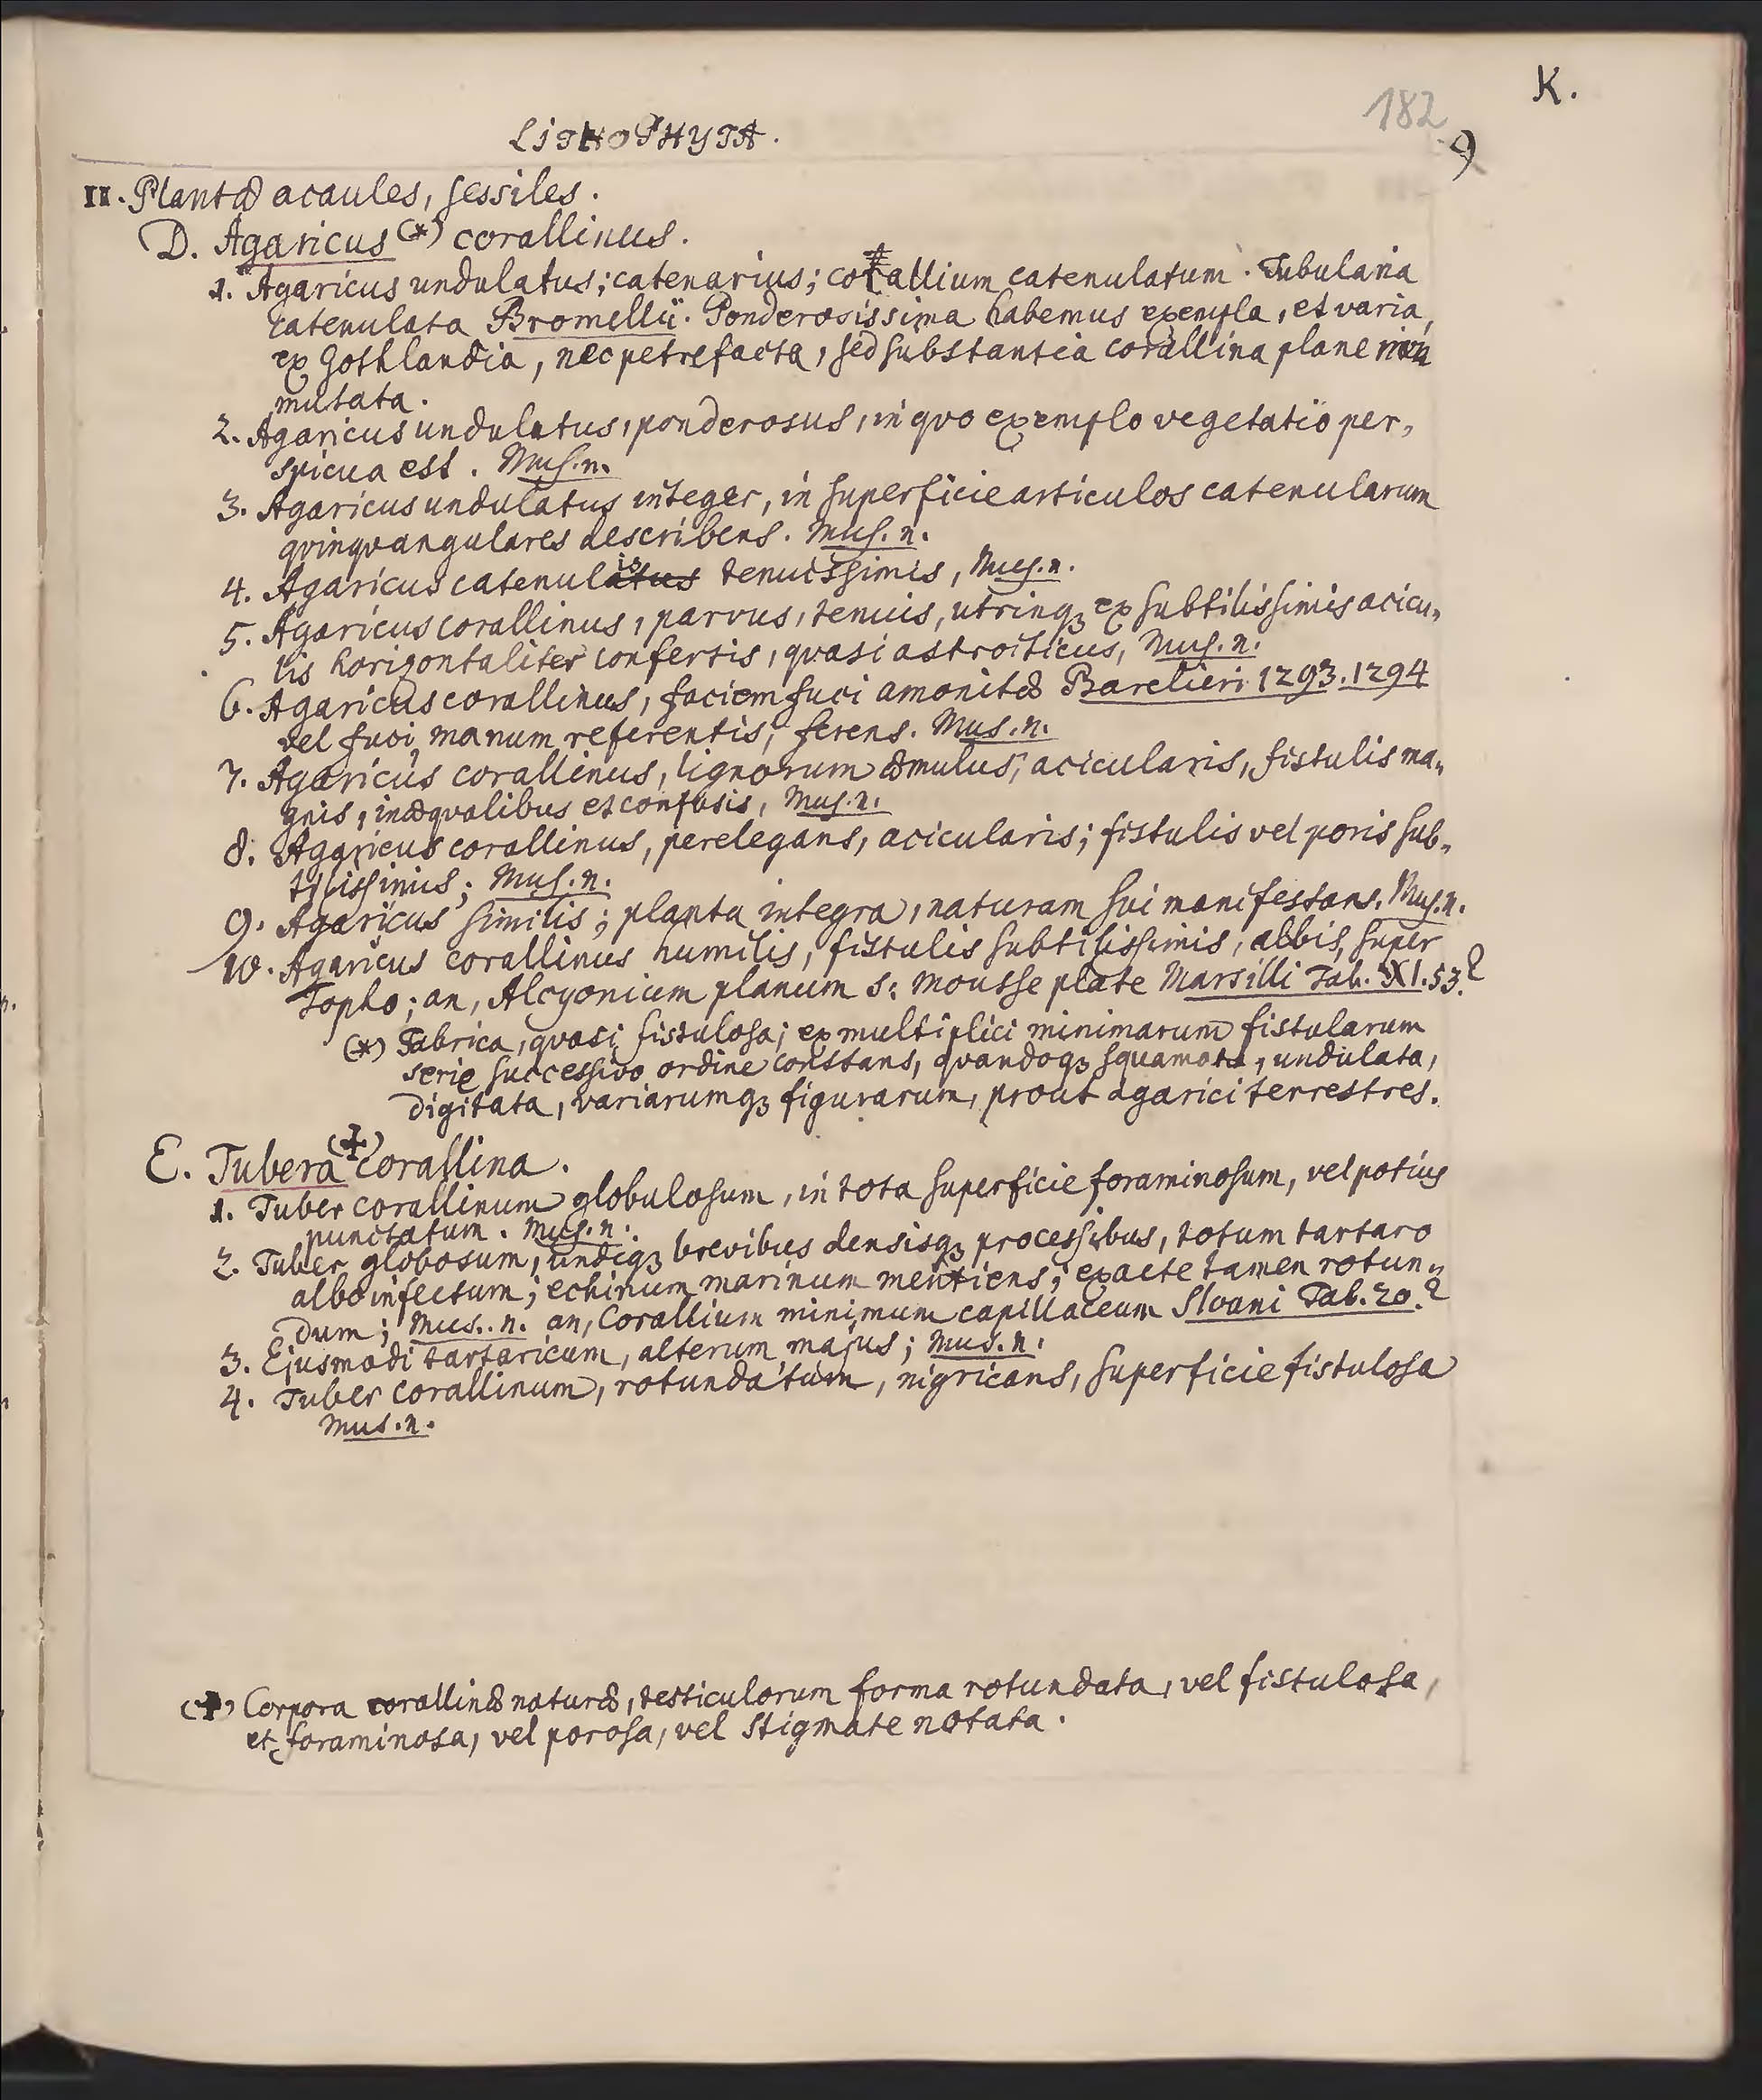 K.
182
9
LITHOPHYTA.
II. Plantæ acaules, sessiles.
D. Agaricus (*) corallinus.
1. Agaricus undulatus; catenarius; corallium catenulatum. Tubularia
catenulata Bromellii. Ponderosissima habemus exempla, et varia,
ex Gothlandia, nec petrefacta, sed substantia corallina plane non
mutata.
2. Agaricus undulatus, ponderosus, in qvo exemplo vegetatio per„
spicua est. Mus. n.
3. Agaricus undulatus integer, in superficie articulos catenularum
qvinqvangulares describens. Mus. n.
4. Agaricus catenulis tenuissimis, Mus. n.
5. Agaricus corallinus, parvus, tenuis, utrinqꝫ ex subtilissimis acicu„
lis horizontaliter confertis, qvasi astroiticus, Mus. n.
6. Agaricus corallinus, faciem fuci amonitæ Barelieri 1293. 1294
vel fuci manum referentis, ferens. Mus. n.
7. Agaricus corallinus, lignorum æmulus, acicularis, fistulis ma„
gnis, inæqvalibus et confusis, Mus. n.
8. Agaricus corallinus, perelegans, acicularis; fistulis vel poris sub„
tilissimis; Mus. n.
9. Agaricus similis; planta integra, naturam sui manifestans. Mus. n.
10. Agaricus corallinus humilis, fistulis subtilissimis, albis, super
Topho; an, Alcyonium planum s: mousse plate Marsilli Tab. XI. 53?
(*) Fabrica, qvasi fistulosa; ex multiplici minimarum fistularum
serie successivo ordine constans, qvandoqꝫ squamata, undulata,
digitata, variarumqꝫ figurarum, prout agarici terrestres.
E. Tubera (✝) corallina.
1. Tuber corallinum globulosum, in tota superficie foraminosum, vel potius
punctatum. Mus. n.
2. Tuber globosum, undiqꝫ brevibus densisqꝫ processibus, totum tartaro
albo infectum; echinum marinum mentiens; exacte tamen rotun„
dum; Mus. n. an, Corallium minimum capillaceum Sloani Tab. 20.?
3. Ejusmodi tartaricum, alterum majus; Mus. n.
4. Tuber corallinum, rotundatum, nigricans, superficie fistulosa
Mus. n.
(✝) Corpora corallinæ naturæ, testiculorum forma rotundata, vel fistulosa,
et foraminosa, vel porosa, vel stigmate notata.